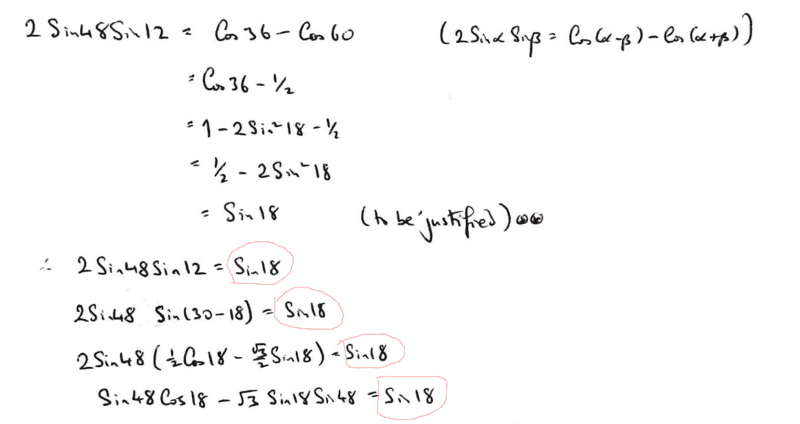 2 Sin48 Sin12 = Cos36 - Cos60 (2Sinα Sinβ = Cos(α-β) - Cos(α+β))
= Cos36 - 1/2
= 1 - 2Sin²18 - 1/2
= 1/2 - 2Sin²18
= Sin18 (to be justified)
∴ 2Sin48Sin12 = Sin18
2Sin48 Sin(30-18) = Sin18
2Sin48 (1/2 Cos18 - √3/2 Sin18) = Sin18
Sin48 Cos18 - √3 Sin18 Sin48 = Sin18